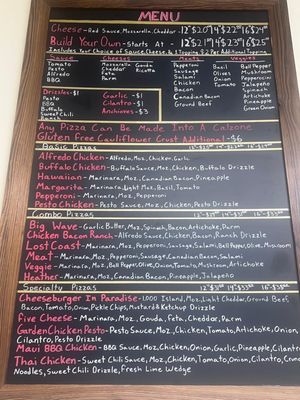 MENU
Cheese - Red Sauce, Mozzarella, Cheddar - 12" $20 14" $22 16" $24
Build Your Own - Starts At - 12" $21 14" $23 16" $25
Includes Your Choice of Sauce, Cheese, & 1 Topping. $2 Per Additional Topping
Sauce Cheeses Meats Veggies
Tomato
Pesto
Alfredo
BBQ
Mozzarella
Cheddar
Feta
Parm
Gouda
Ricotta
Pepperoni
Sausage
Salami
Chicken
Bacon
Canadian Bacon
Ground Beef
Basil
Olives
Onion
Tomato
Bell Pepper
Mushroom
Pepperoncini
Jalapeño
Spinach
Artichoke
Pineapple
Green Onion
Drizzles - $1
Pesto
BBQ
Buffalo
Sweet Chili
Ranch
Garlic - $1
Cilantro - $1
Anchovies - $3
Any Pizza Can Be Made Into A Calzone
Gluten Free Cauliflower Crust Additional - $6
Basic Pizzas
Alfredo Chicken - Alfredo, Moz, Chicken, Garlic
Buffalo Chicken - Buffalo Sauce, Moz, Chicken, Buffalo Drizzle
Hawaiian - Marinara, Moz, Canadian Bacon, Pineapple
Margarita - Marinara, Light Moz, Basil, Tomato
Pepperoni - Marinara, Moz, Pepperoni
Pesto Chicken - Pesto Sauce, Moz, Chicken, Pesto Drizzle
Combo Pizzas
Big Wave - Garlic Butter, Moz, Spinach, Bacon, Artichoke, Parm
Chicken Bacon Ranch - Alfredo Sauce, Chicken, Bacon, Ranch Drizzle
Lost Coast - Marinara, Moz, Pepperoni, Sausage, Salami, Bell Pepper, Olive, Mushroom
Meat - Marinara, Moz, Pepperoni, Sausage, Canadian Bacon, Salami
Veggie - Marinara, Moz, Bell Pepper, Olive, Onion, Tomato, Mushroom, Artichoke
Heather - Marinara, Moz, Canadian Bacon, Pineapple, Jalapeño
Specialty Pizzas
Cheeseburger In Paradise - 1,000 Island, Moz, Light Cheddar, Ground Beef,
Bacon, Tomato, Onion, Pickle Chips, Mustard & Ketchup Drizzle
Five Cheese - Marinara, Moz, Gouda, Feta, Cheddar, Parm
Garden Chicken Pesto - Pesto Sauce, Moz, Chicken, Tomato, Artichoke, Onion,
Cilantro, Pesto Drizzle
Maui BBQ Chicken - BBQ Sauce, Moz, Chicken, Onion, Garlic, Pineapple, Cilantro
Thai Chicken - Sweet Chili Sauce, Moz, Chicken, Tomato, Onion, Cilantro, Crunchy
Noodles, Sweet Chili Drizzle, Fresh Lime Wedge